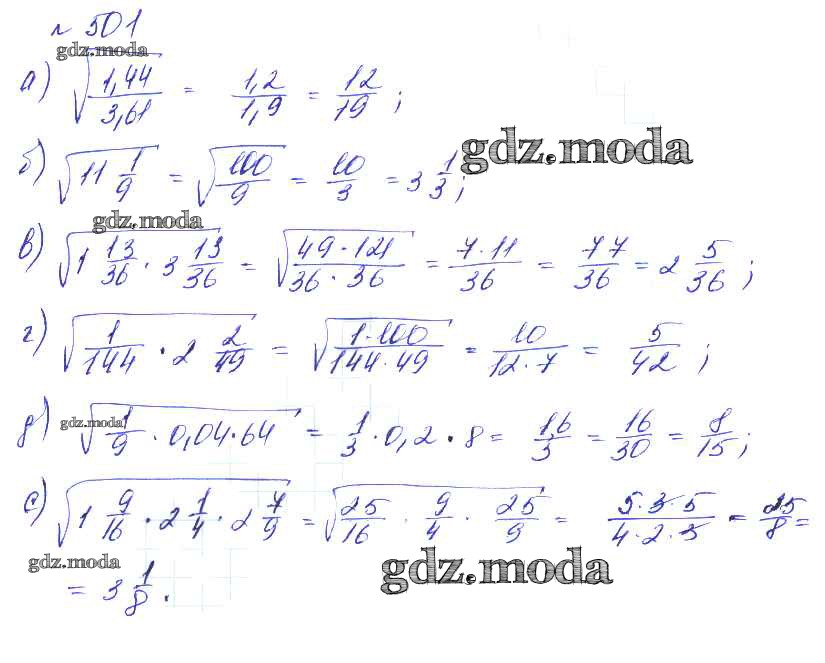 № 501
gdz.moda
а) √(1,44/3,61) = 1,2/1,9 = 12/19 ;
gdz.moda
б) √(11 1/9) = √(100/9) = 10/3 = 3 1/3 ;
gdz.moda
в) √(1 13/36 · 3 13/36) = √((49 · 121)/(36 · 36)) = (7 · 11)/36 = 77/36 = 2 5/36 ;
г) √(1/144 · 2 2/49) = √((1 · 100)/(144 · 49)) = 10/(12 · 7) = 5/42 ;
gdz.moda
д) √(1/9 · 0,04 · 64) = 1/3 · 0,2 · 8 = 16/3 = 16/30 = 8/15 ;
е) √(1 9/16 · 2 1/4 · 2 7/9) = √(25/16 · 9/4 · 25/9) = (5 · 3 · 5)/(4 · 2 · 3) = 25/8 =
gdz.moda gdz.moda
= 3 1/8 .